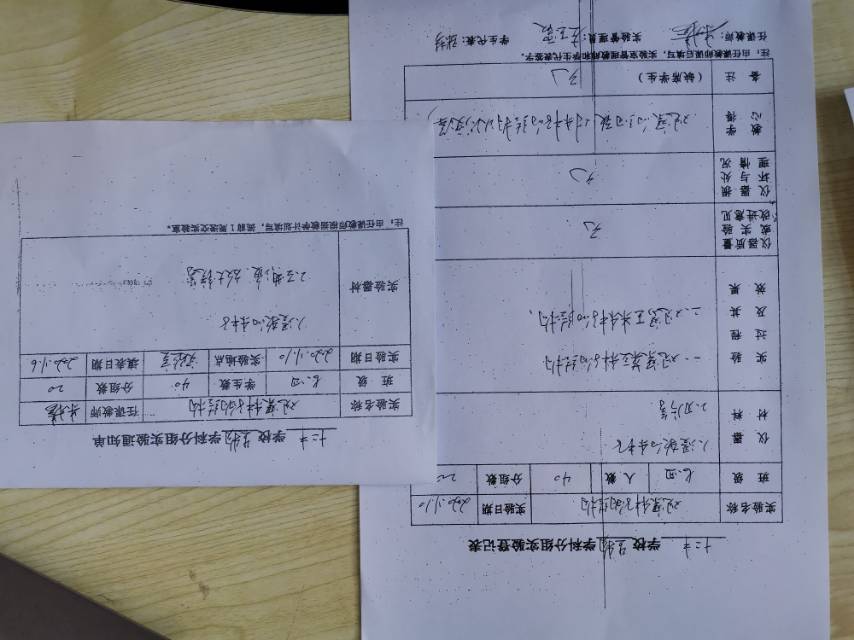 十二中 学校 生物 学科分组实验通知单
实验名称 观察种子的结构 任课教师
班 级 七.四 学生数 40 分组数 20
实验日期 2020.11.10 实验地点 实验室 填表日期 2020.11.6
实验器材
1.浸软的种子
2.刀片、镊、放大镜等
注:由任课教师根据教学计划填写,提前1周送交实验室。
十二中 学校 生物 学科分组实验登记表
实验名称 观察种子的结构 实验日期 2020.11.10
班 级 七.四 人 数 40 分组数 20
仪 器 材 料
1.浸软的种子
2.刀片等
实 验 过 程 及 其 效 果
一.观察菜豆种子的结构
二.观察玉米种子的结构
仪器质量或实验改进意见 无
仪器损坏与处理情况 无
教 学 心 得
备 注 (缺席学生) 无
注:由任课教师课后填写,实验室管理教师和学生代表签字。
任课教师: 实验管理员: 学生代表: